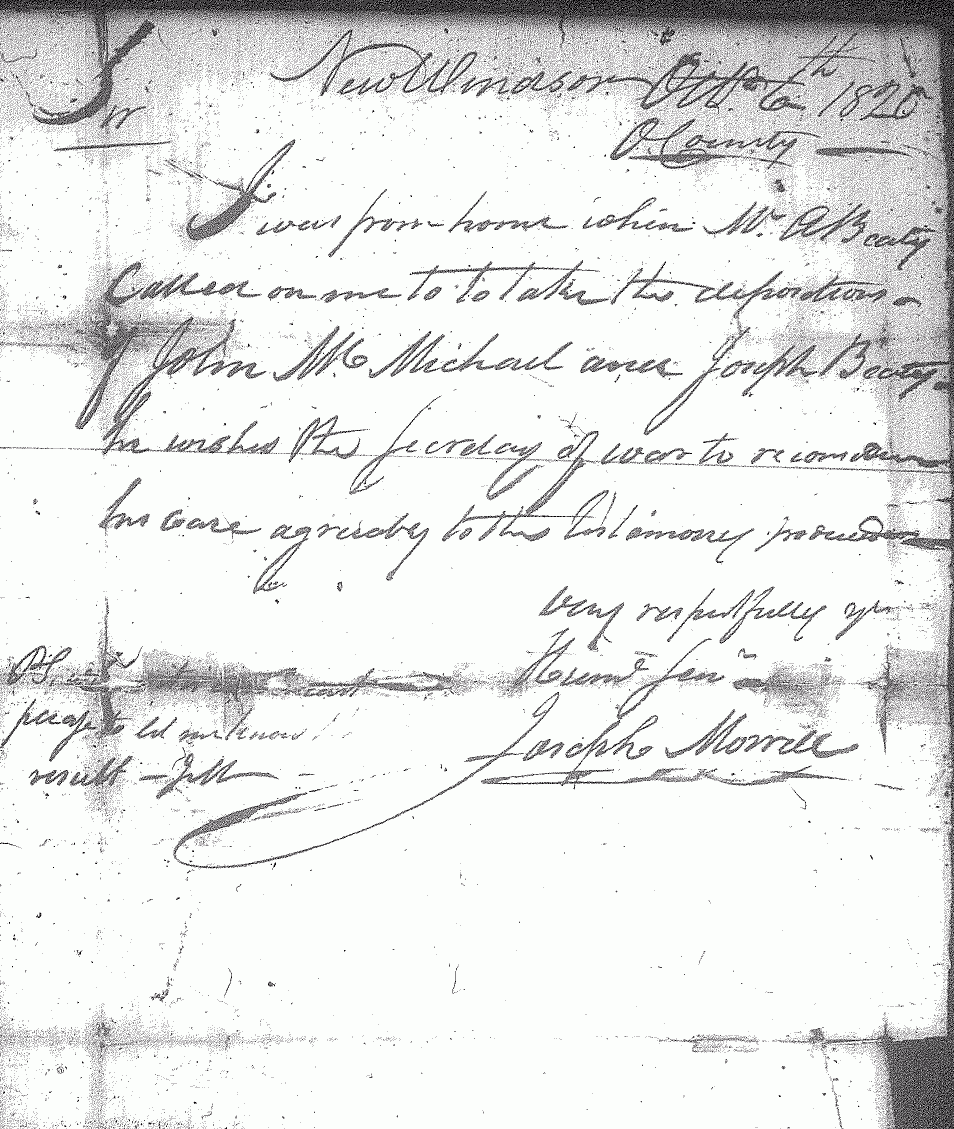 Sir New Windsor Octr 6th 1820
O. County
I was from home when Mr. A Beaty
Called on me to to take the depositions
of John Mc Michael and Joseph Beaty
he wishes the Secretay of war to
his Case agreeably to the testimony
very respectfully yr
Humе Serv
Joseph Morrell
PS,
please to let me know
result — JM